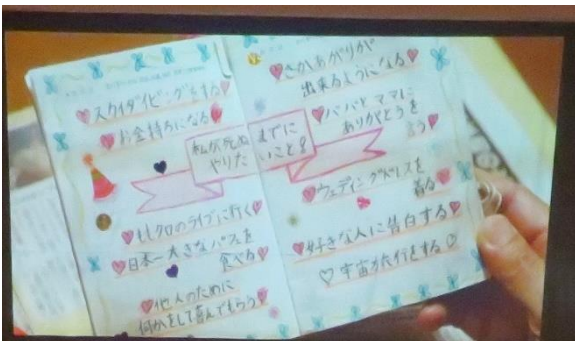 スカイダイビングをする
お金持ちになる
私が死ぬまでに
やりたいこと8
ももクロのライブに行く
日本一大きなパフェを
食べる
他人のために
何かをして喜んでもらう
さかあがりが
出来るようになる
パパとママに
ありがとうを
言う
ウェディングドレスを
着る
好きな人に告白する
宇宙旅行をする